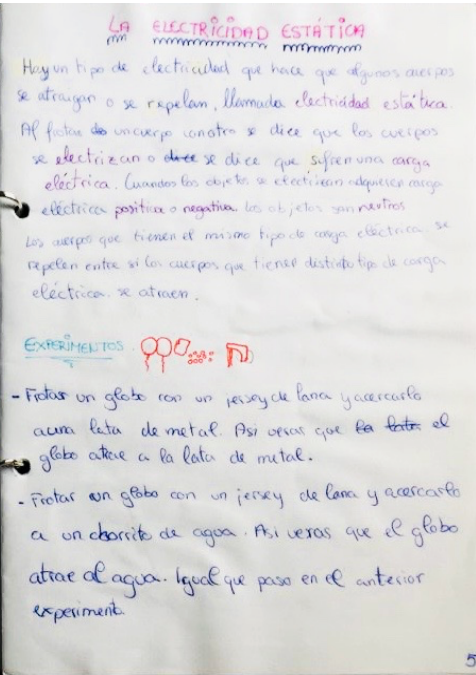 LA ELECTRICIDAD ESTÁTICA
Hay un tipo de electricidad que hace que algunos cuerpos
se atraigan o se repelan, llamada electricidad estática.
Al frotar un cuerpo con otro se dice que los cuerpos
se electrizan o dice se dice que sufren una carga
eléctrica. Cuandos los objetos se electrizan adquieren carga
eléctrica positiva o negativa los objetos son neutros
Los cuerpos que tienen el mismo tipo de carga eléctrica. se
repelen entre si los cuerpos que tienen distinto tipo de carga
eléctrica. se atraen.
EXPERIMENTOS.
- Frotar un globo con un jersey de lana y acercarlo
a una lata de metal. Asi veras que la lata el
globo atrae a la lata de metal.
- Frotar un globo con un jersey de lana y acercarlo
a un chorrito de agua. Asi veras que el globo
atrae al agua. Igual que paso en el anterior
experimento.
5